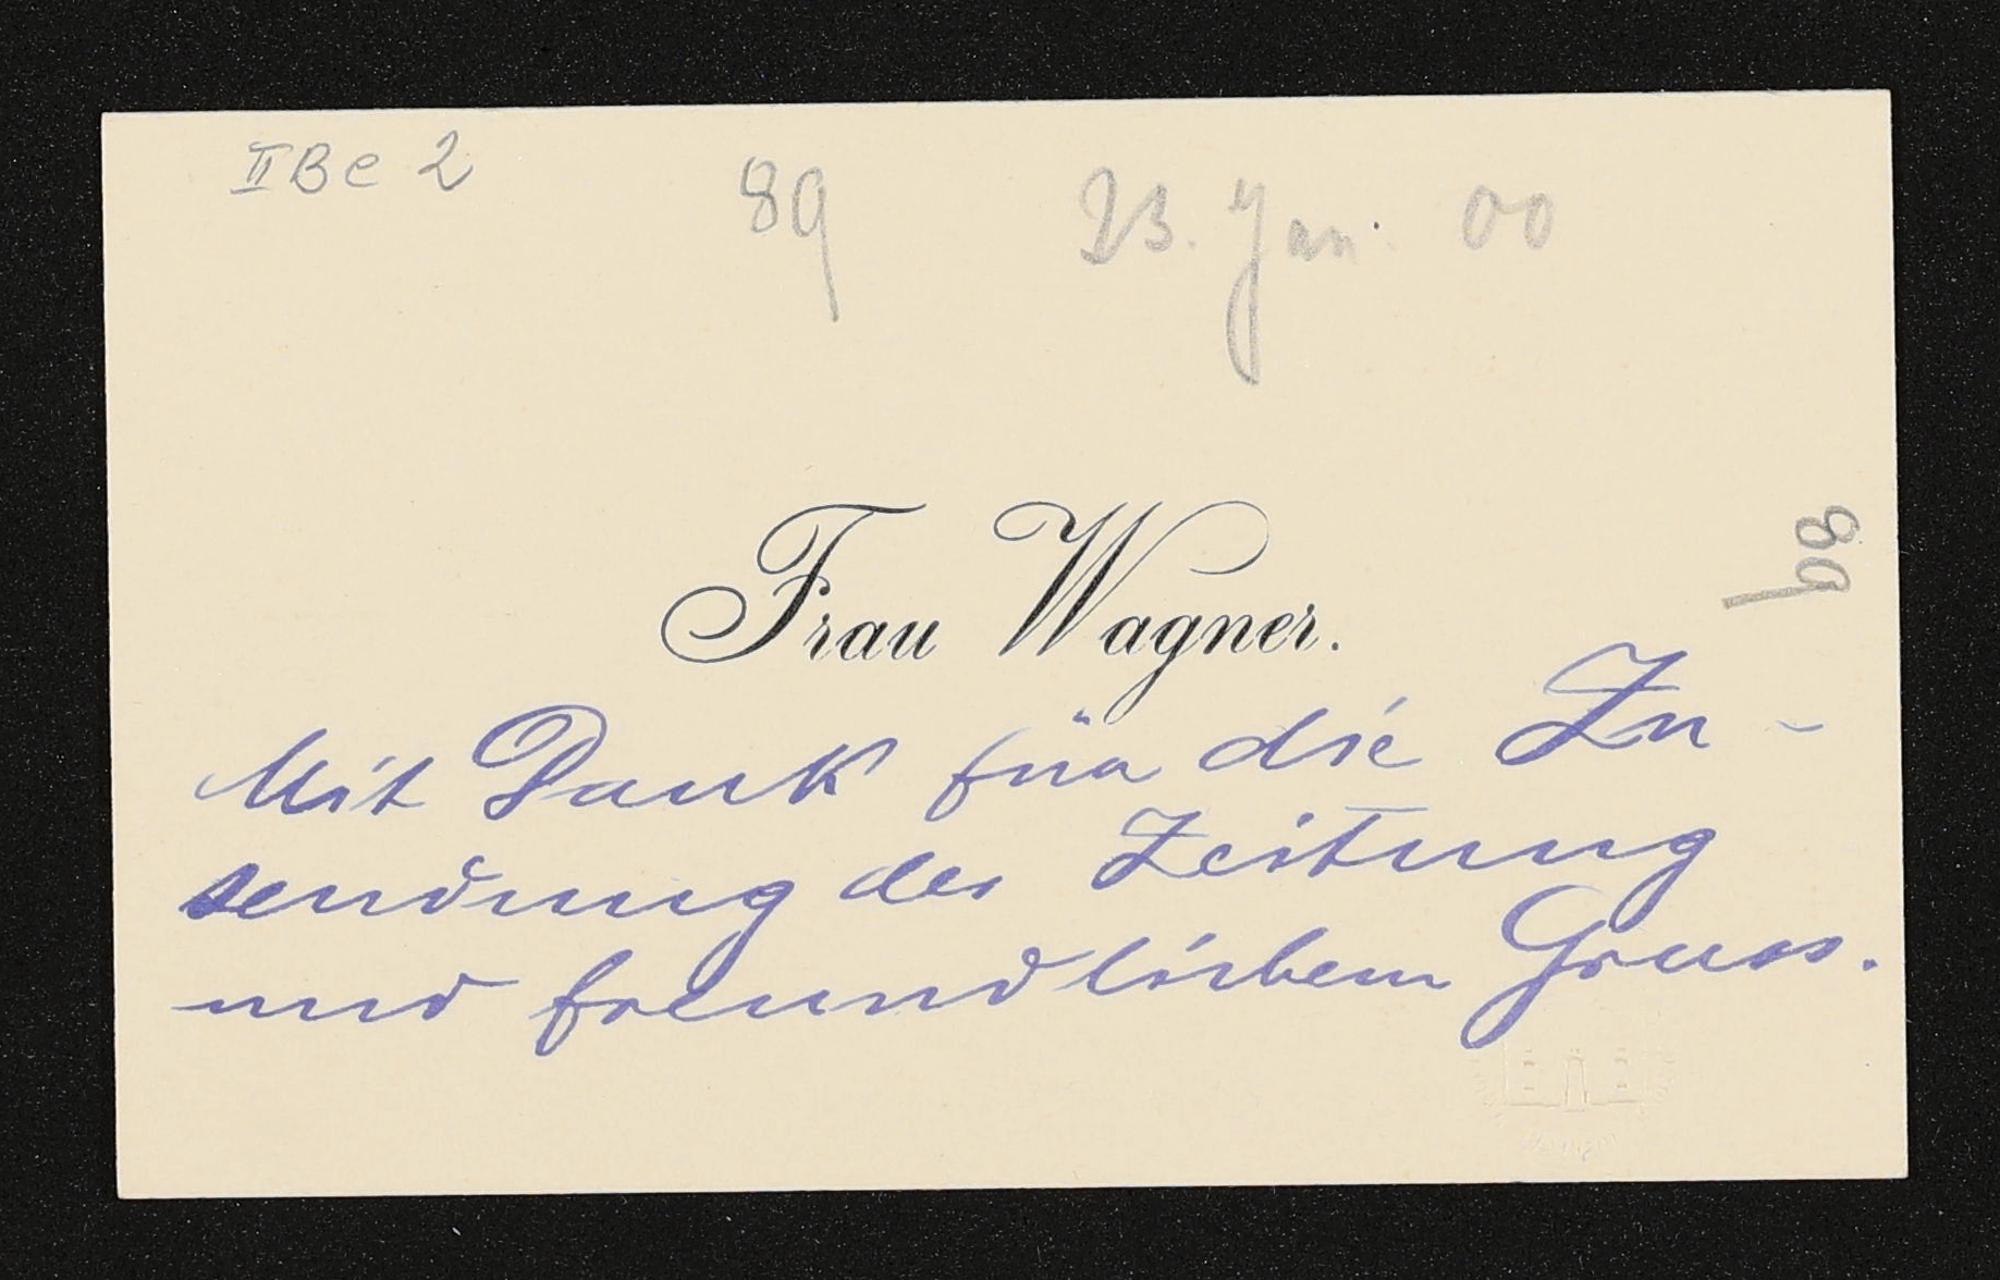 II Be 2
89
23. Jan. 00
Frau Wagner.
89
Mit Dank für die Zu-
sendung der Zeitung
und freundlichem Gruss.